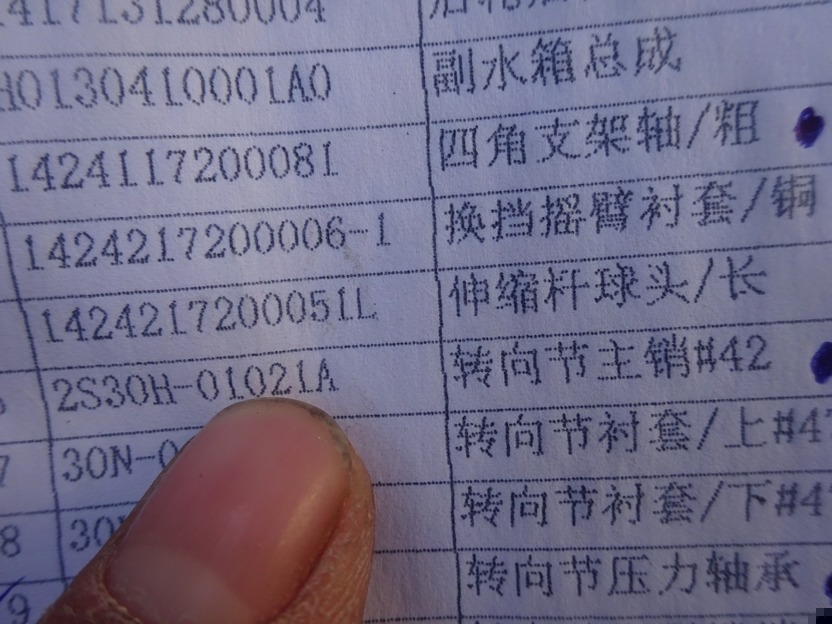 417131280004
H0130410001A0 副水箱总成
1424117200081 四角支架轴/粗
1424217200006-1 换挡摇臂衬套/铜
1424217200051L 伸缩杆球头/长
2S30H-01021A 转向节主销#42
7 30N-0 转向节衬套/上#4
8 30 转向节衬套/下#4
9 转向节压力轴承